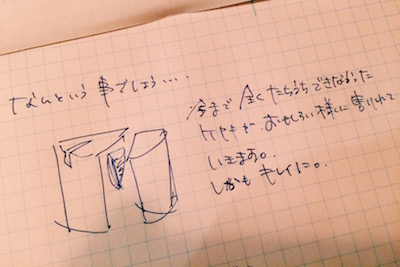 なんという事でしょう...
今まで全くたちうちできなかった
ケヤキが、おもしろい様に割れて
いきます。
しかもキレイに。